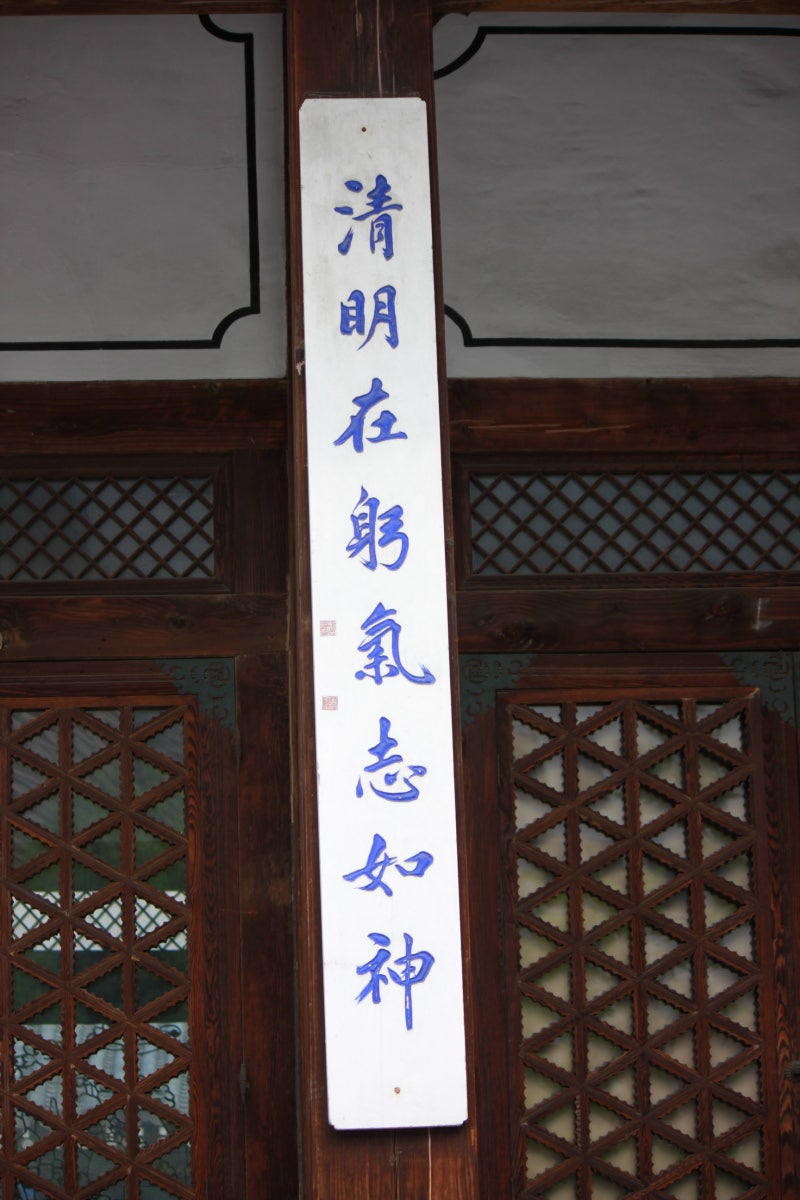 清明在躬氣志如神